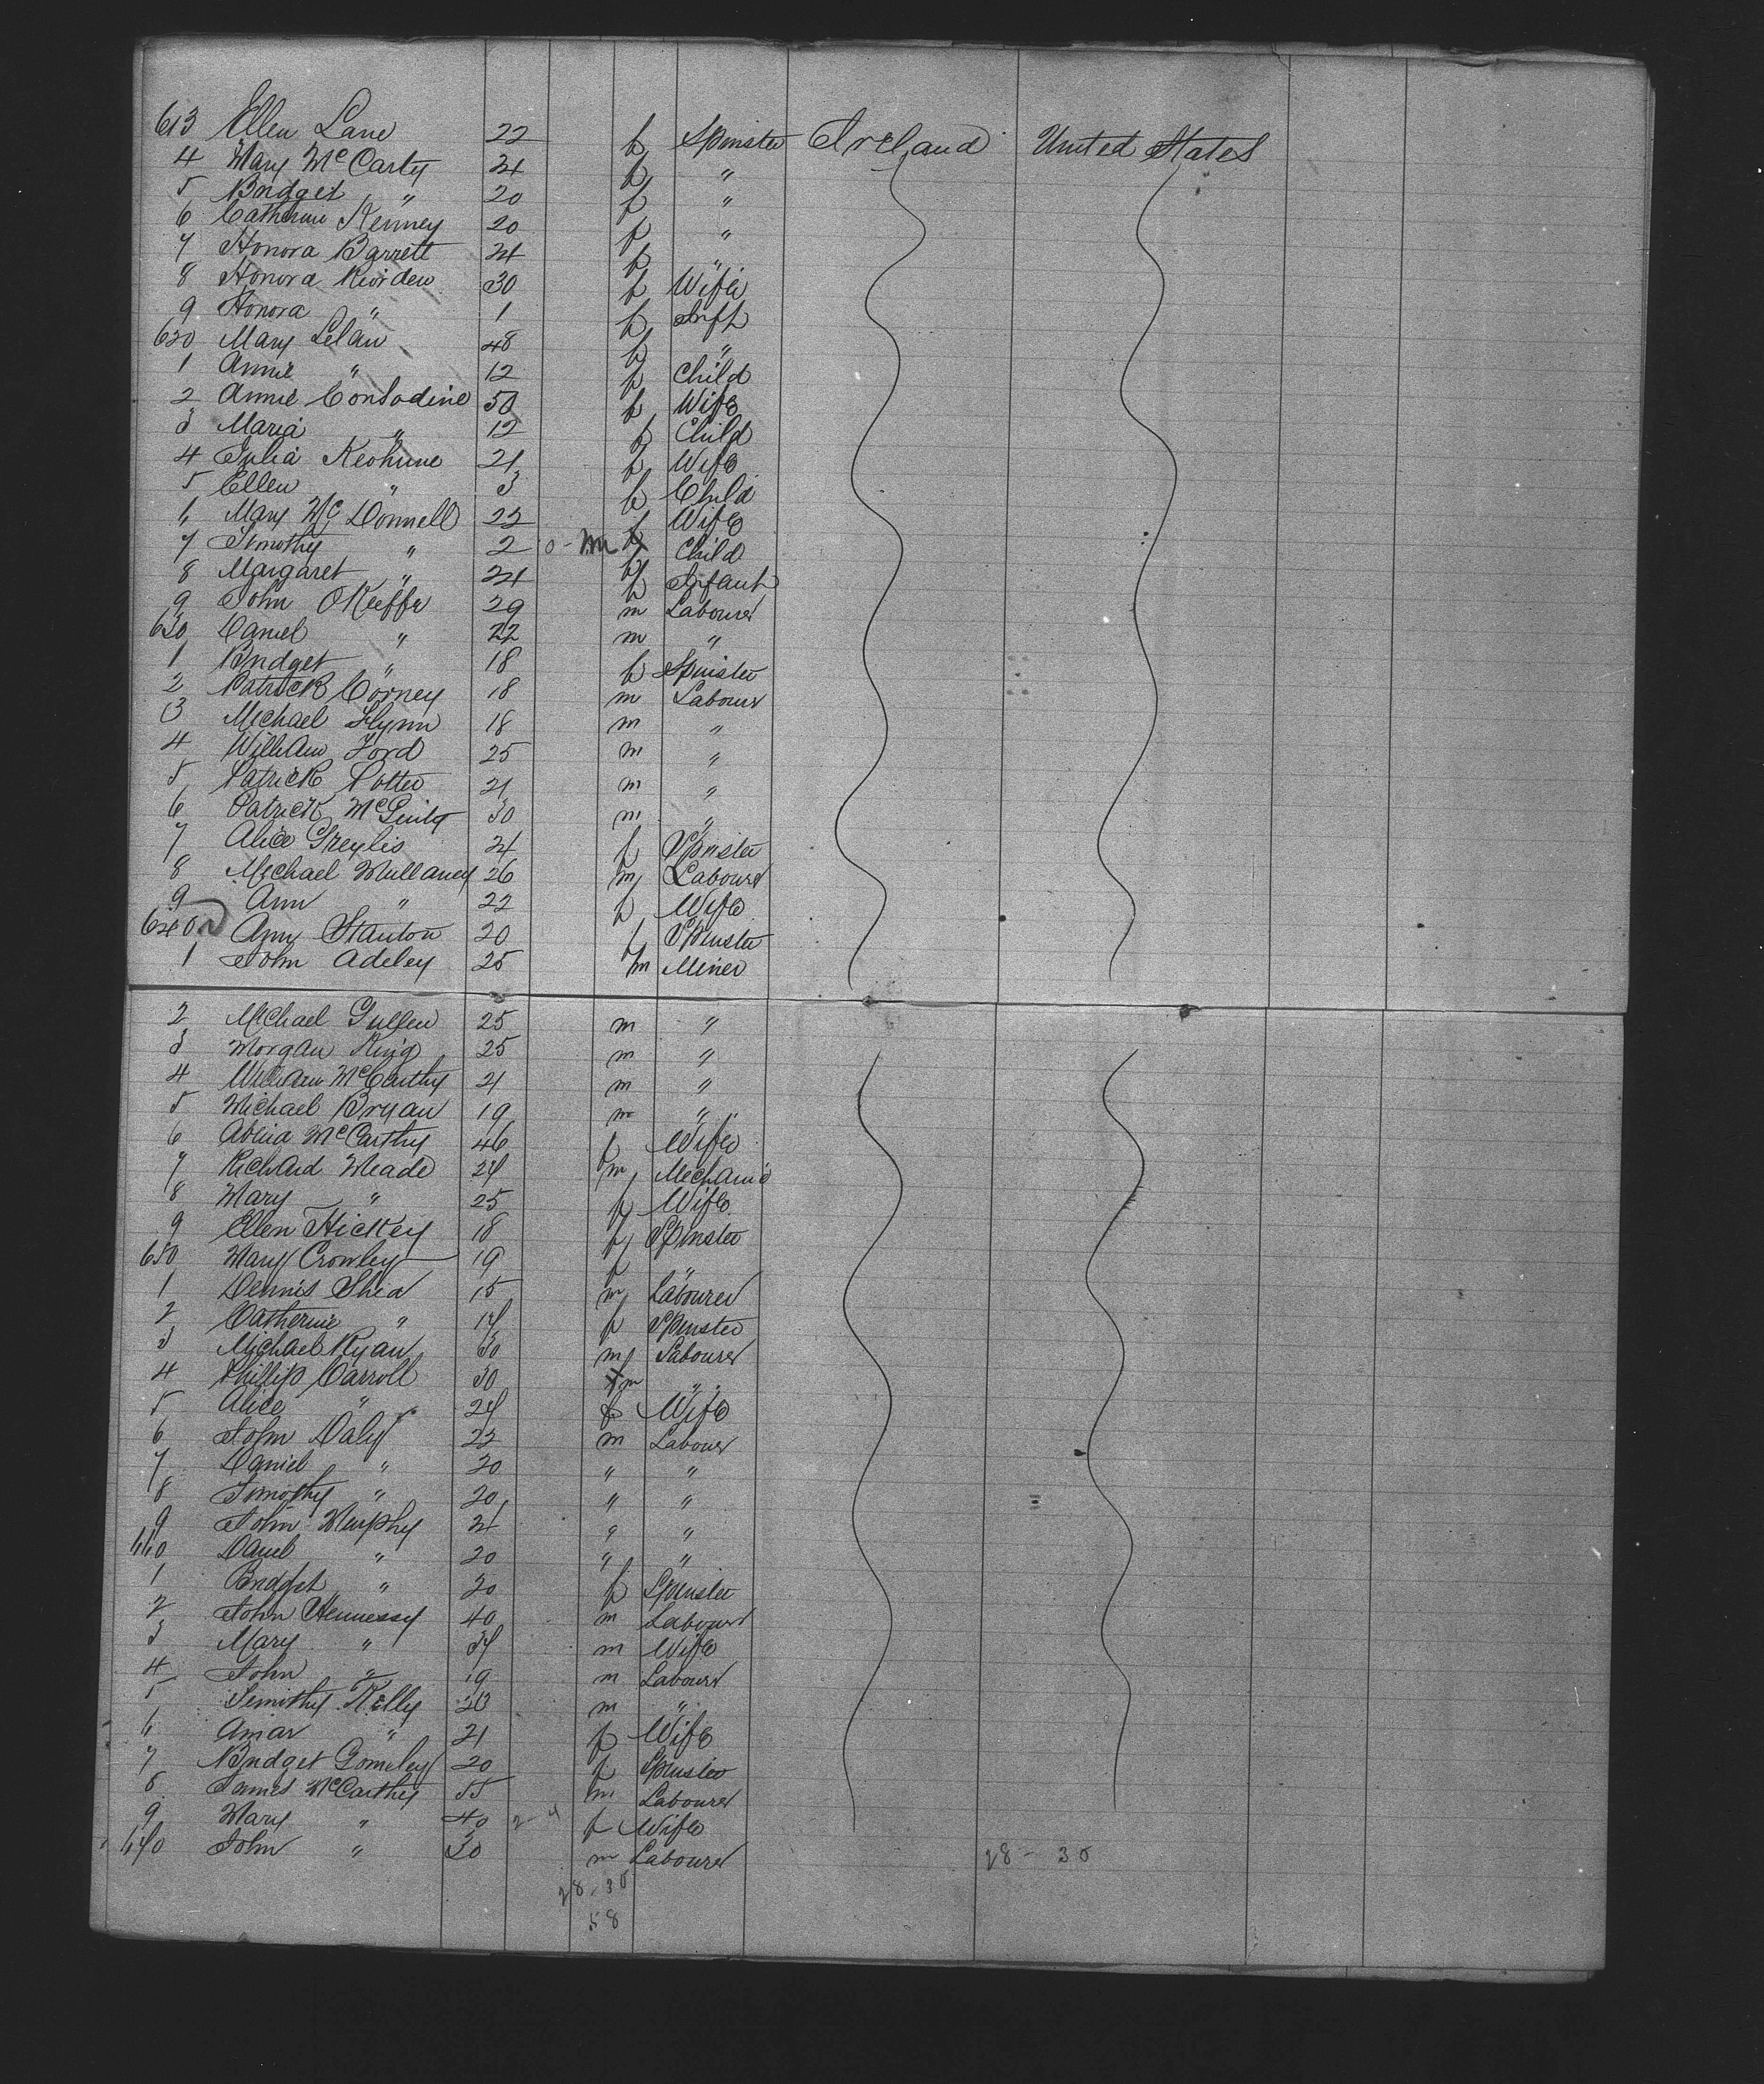 613 Ellen Lane 22 f Spinster Ireland United States
4 Mary McCarty 24 f "
5 Bridget " 20 f "
6 Catherine Kenney 20 f "
7 Honora Barrett 24 f "
8 Honora Riorden 30 f Wife
9 Honora " 1 f Inft
620 Mary Lelan 48 f "
1 Annie " 12 f Child
2 Annie Consodine 50 f Wife
3 Maria " 12 f Child
4 Julia Keohune 21 f Wife
5 Ellen " 3 f Child
6 Mary McDonnell 22 f Wife
7 Timothy " 2 0 - m f Child
8 Margaret " 24 f Infant
9 John OKeeffe 29 m Labourer
630 Daniel " 22 m "
1 Bridget " 18 f Spinster
2 Patrick Corney 18 m Labourer
3 Michael Flynn 18 m "
4 William Ford 25 m "
5 Patrick Potter 21 m "
6 Patrick 30 m "
7 Alice 24 f Spinster
8 Michael Mullaney 26 m Labourer
9 Ann " 22 f Wife
640 Ann Stanton 20 f Spinster
1 John Adeley 25 m Miner
2 Michael 25 m "
3 Morgan King 25 m "
4 William McCarthy 21 m "
5 Michael Bryan 19 m "
6 McCarthy 46 f Wife
7 Richard Meade 24 m Mechanic
8 Mary " 25 f Wife
9 Ellen Hickey 18 f Spinster
650 Mary Crowley 19 f "
1 Dennis Shea 15 m Labourer
2 Catherine " 17 f Spinster
3 Michael Ryan 30 m Labourer
4 Phillip Carroll 30 m "
5 Alice " 24 f Wife
6 John Daly 22 m Labourer
7 Daniel " 20 " "
8 Timothy " 20 " "
9 John Murphy 21 " "
660 Daniel " 20 " "
1 Bridget " 20 f Spinster
2 John Hennessy 40 m Labourer
3 Mary " 37 m Wife
4 John " 19 m Labourer
5 Timothy Kelly m "
6 " 21 f Wife
7 Bridget Gomeley 20 f Spinster
8 James McCarthy 55 m Labourer
9 Mary " 40 f Wife
670 John " 30 m Labourer
28 - 30
28 - 30
58